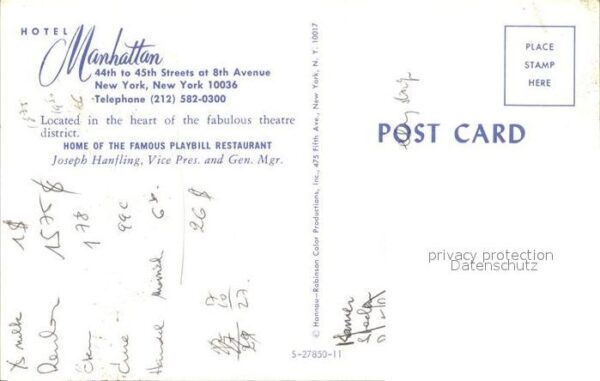 HOTEL
Manhattan
44th to 45th Streets at 8th Avenue
New York, New York 10036
Telephone (212) 582-0300
Located in the heart of the fabulous theatre
district.
HOME OF THE FAMOUS PLAYBILL RESTAURANT
Joseph Hanfling, Vice Pres. and Gen. Mgr.
1$
1575 $
178
99c
26 $
17
10
27.
© Hannau-Robinson Color Productions, Inc., 475 Fifth Ave., New York, N. Y. 10017
S-27850-11
PLACE
STAMP
HERE
POST CARD
privacy protection
Datenschutz